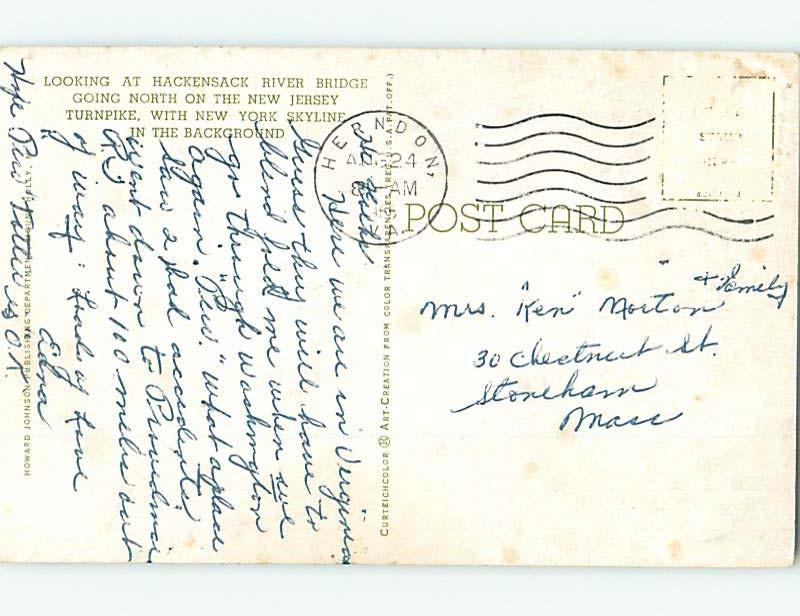 LOOKING AT HACKENSACK RIVER BRIDGE
GOING NORTH ON THE NEW JERSEY
TURNPIKE, WITH NEW YORK SKYLINE
IN THE BACKGROUND
Here we are in Verginia
Guess they will have to
blind fold me when we
go through Washington
again. "Pew." what a place
saw 2 bad accidents
went down to
about 100 miles out
of way. Loads of Love
Edna
Hope is O.K.
HERNDON,
24
AM
POST CARD
Mrs. "Ken" Norton
+ Family
30 Chestnut St.
Stoneham
Mass
CURTEICHCOLOR ® ART-CREATION FROM COLOR TRANSPARENCIES (REG. U.S.A. PAT. OFF.)
HOWARD JOHNSON PUBLISHING DEPARTMENT